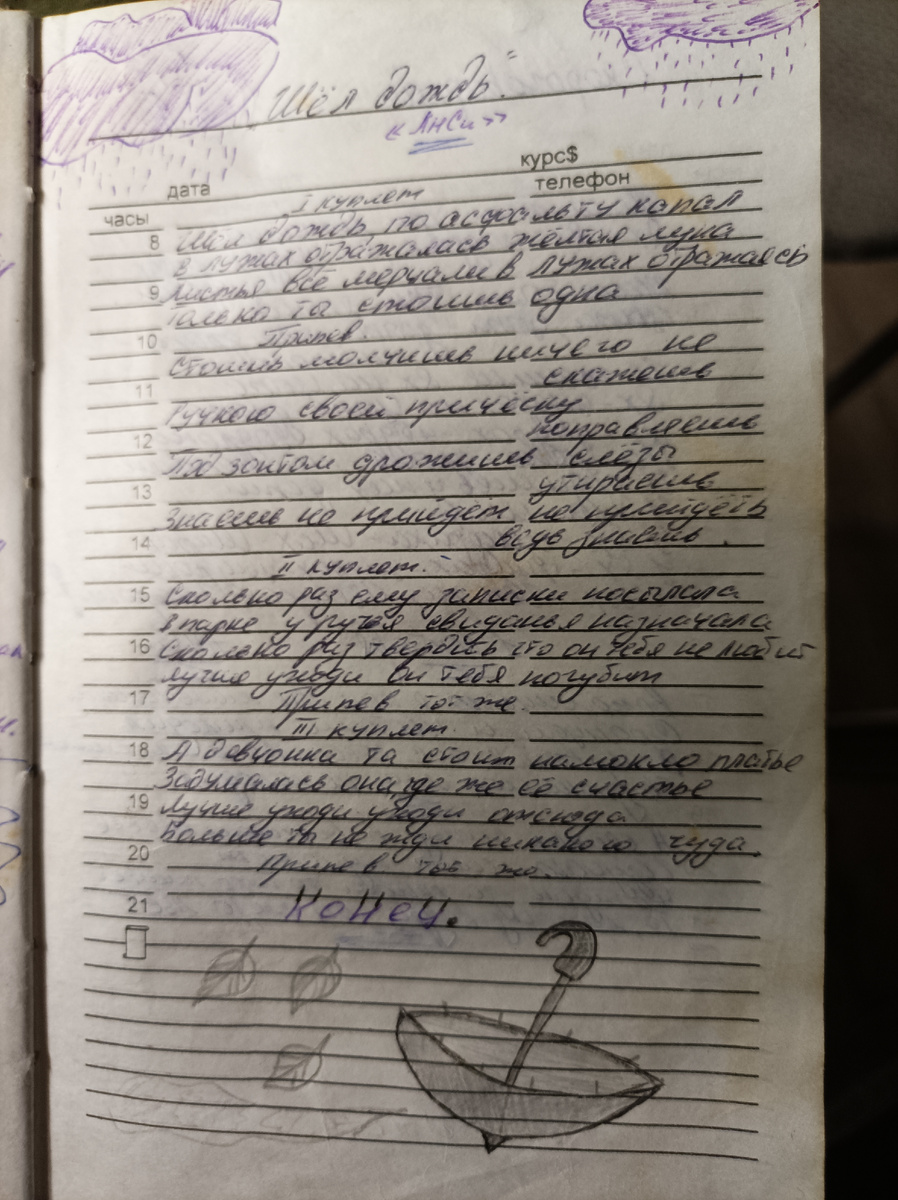 „Шёл дождь".
«АнСи»
курс$
дата
телефон
I куплет
часы
8 Шёл дождь по асфальту капал
В лужах отражалась жёлтая луна
9 Листья все мерцали в лужах отражаясь
только та стоишь одна
10 Припев.
Стоишь молчишь ничего не
скажешь
11
Ручкою своей причёску
поправляешь
12
Под зонтом дрожишь слёзы
утираешь
13
Знаешь не прийдёт не прийдёть
ведь знаешь.
14
II куплет.
15 Сколько раз ему записки посылала
В парке у ручья свиданья назначала
16 Сколько раз твердишь что он тебя не любит
лучше уходи он тебя погубит
17 Припев тот же.
III куплет
18 А девчонка та стоит намокло платье
Задумалась она, где же её счастье
19 лучше уходи уходи отсюда
больше ты не жди никакого чуда.
20 Припев тот же.
21 Конец.